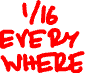 1/16
EVERY
WHERE